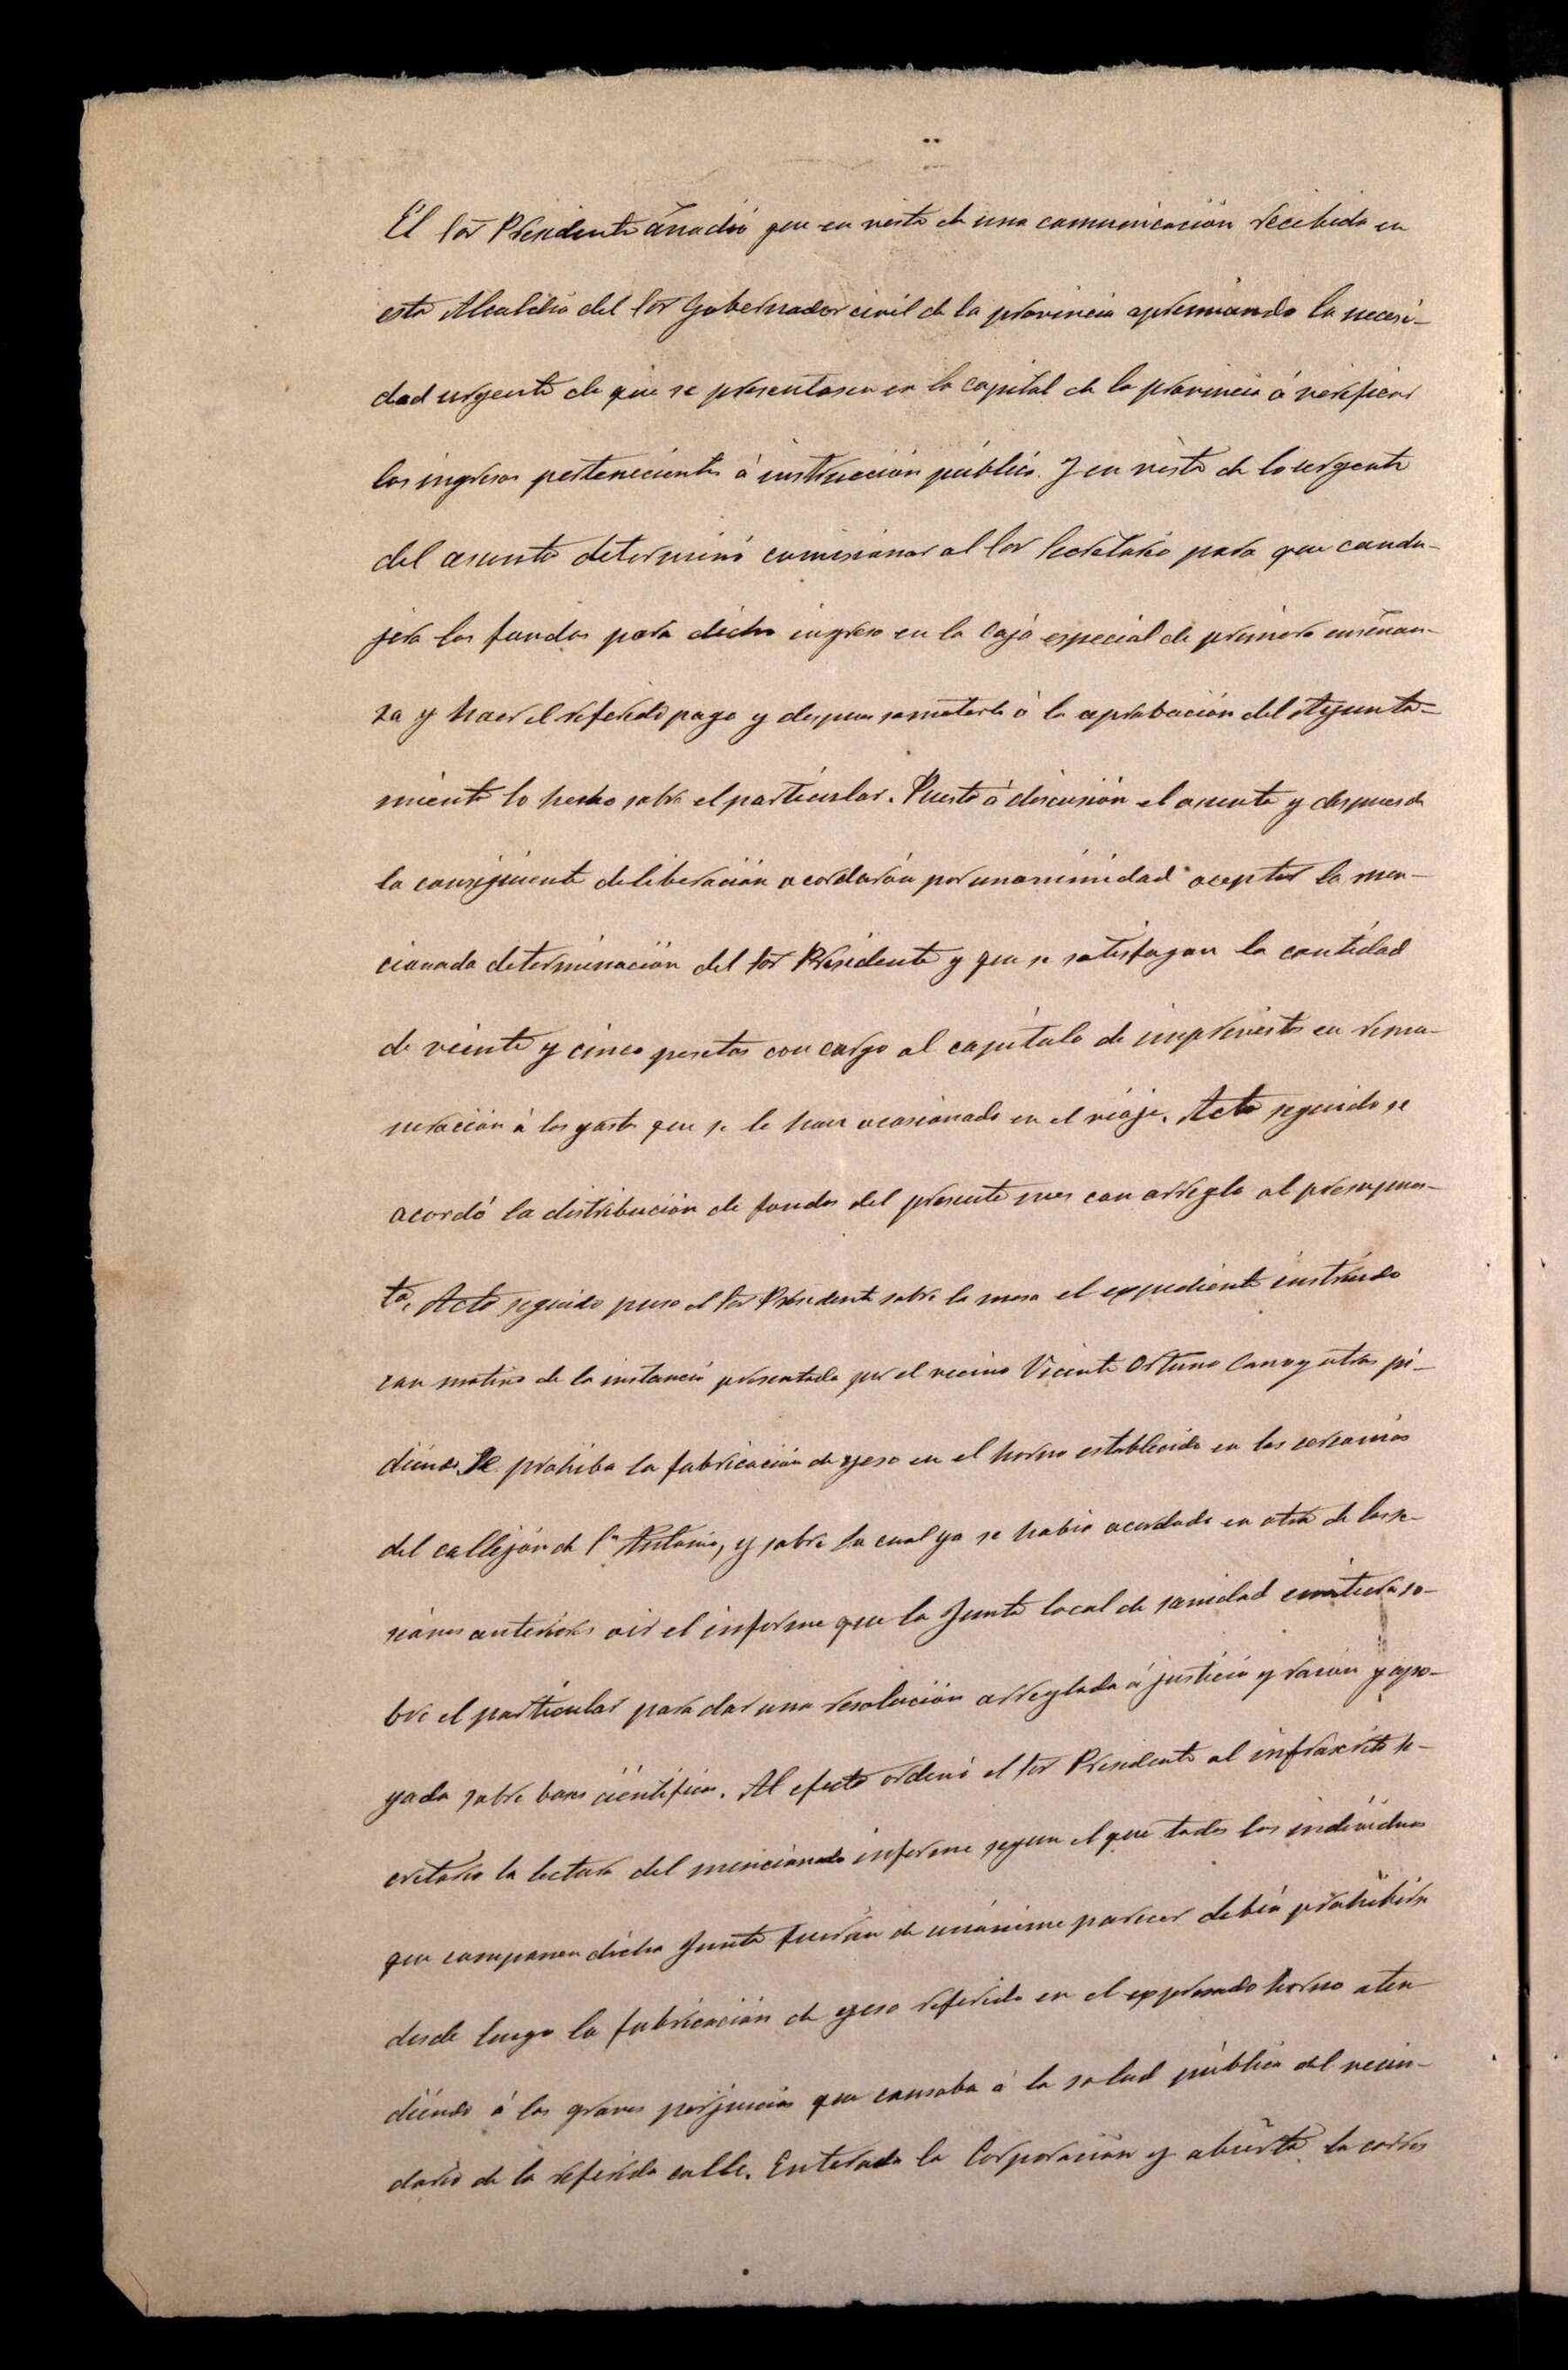 El Sor Presidente añadió que en vista de una comunicación recibida en
esta Alcaldia del Sor Gobernador civil de la provincia apremiando la necesi-
dad urgente de que se presentasen en la capital de la provincia á verificar
los ingresos pertenecientes á instrucción pública. Y en vista de lo urgente
del asunto determinó comisionar al Sor Secretario para que condu-
jera los fondos para dicho ingreso en la Caja especial de primera enseñan-
za y hacer el referido pago y despues someterlo á la aprobación del Ayunta-
miento lo hecho sobre el particular. Puesto á discusión el asunto y despues de
la consiguiente deliberación acordarón por unanimidad aceptar la men-
cionada determinación del Sor Presidente y que se satisfagan la cantidad
de veinte y cinco pesetas con cargo al capitulo de imprevistos en remu-
neración á los gastos que se le han ocasionado en el viaje. Acto seguido se
acordó la distribución de fondos del presente mes con arreglo al presupues-
to. Acto seguido puso el Sor Presidente sobre la mesa el expediente instruido
con motivo de la instancia presentada por el vecino Vicente Ortuño Cano y otros pi-
diendo se prohiba la fabricación de yeso en el horno establecido en las cercanias
del callejón de Sn Antonio, y sobre la cual ya se habia acordado en otra de las se-
siones anteriores oir el informe que la Junta local de sanidad emitiera so-
bre el particular para dar una resolución arreglada á justicia y razón y apo-
yada sobre bases cientificas. Al efecto ordenó el Sor Presidente al infrascrito Se-
cretario la lectura del mencionado informe segun el que todos los individuos
que componen dicha Junta fuerón de unánime parecer debia prohibirse
desde luego la fabricación de yeso referida en el expresado horno aten-
diendo á los graves perjuicios que causaba á la salud pública del vecin-
dario de la referida calle. Enterada la Corporación y abierta la corres